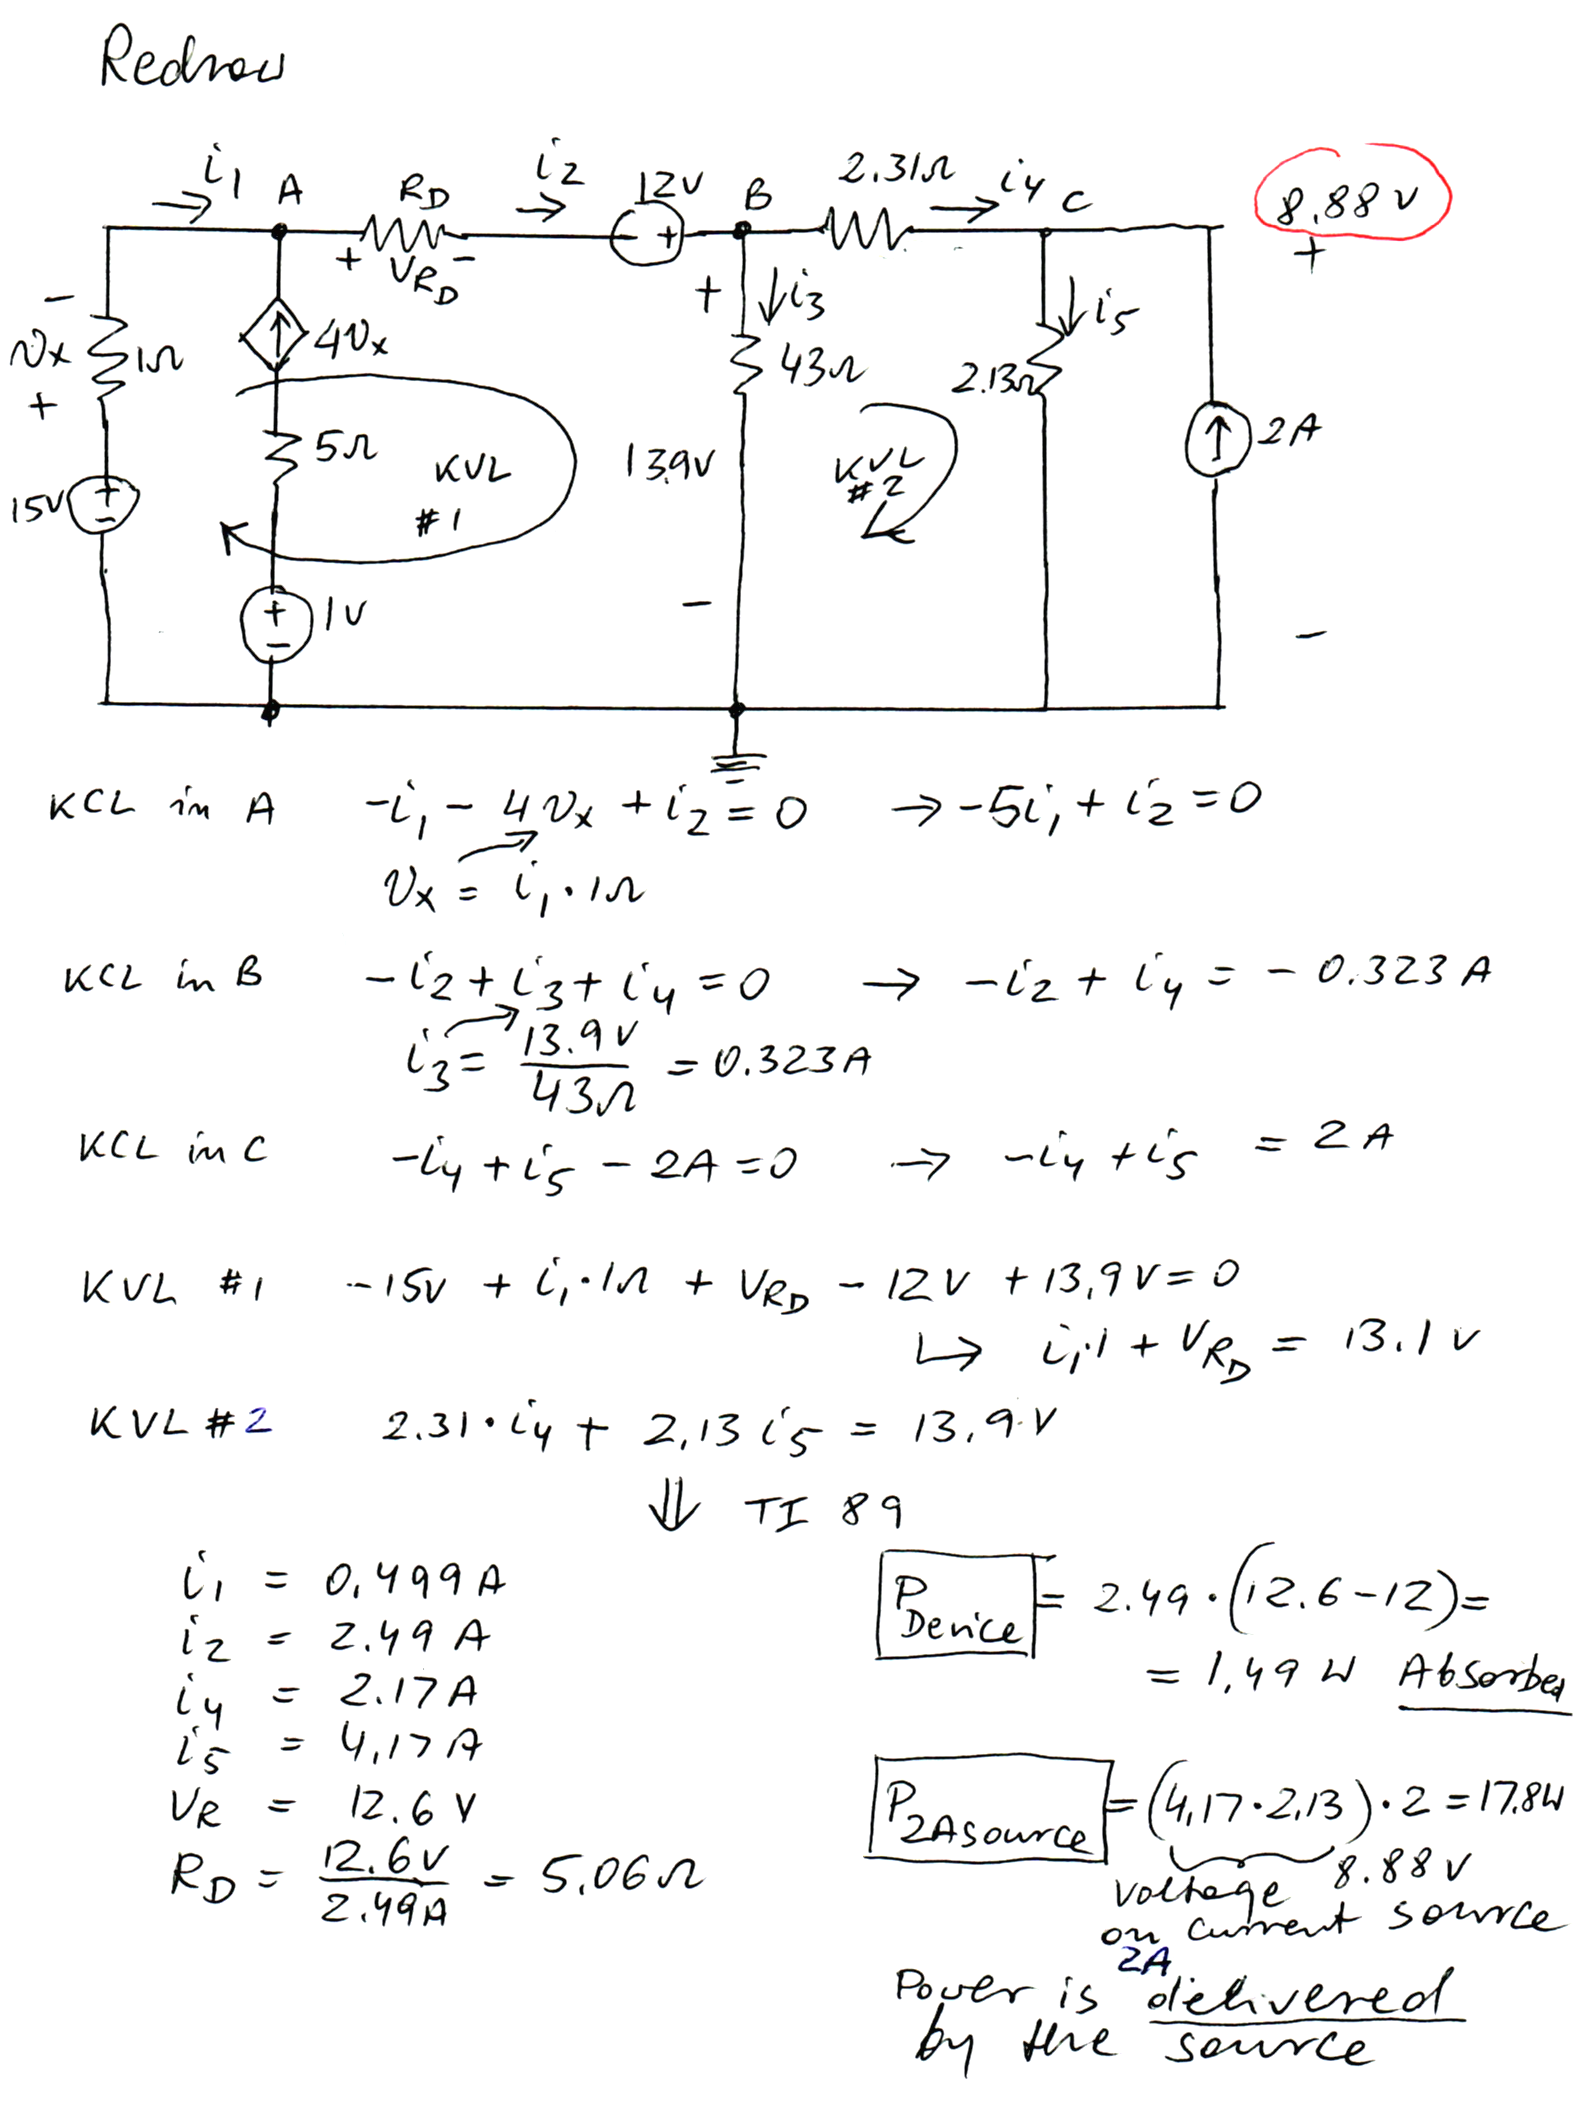 Redraw
i1 A RD i2 12V B 2.31Ω i4 C 8.88V
+ VRD - - + +
- + i3 i5
Vx 1Ω 4Vx 43Ω 2.13Ω
+
5Ω KVL #1 13.9V KVL #2 2A
15V + -
+ - 1V - -
KCL in A -i1 - 4Vx + i2 = 0 → -5i1 + i2 = 0
Vx = i1·1Ω
KCL in B -i2 + i3 + i4 = 0 → -i2 + i4 = -0.323A
i3 = 13.9V/43Ω = 0.323A
KCL in C -i4 + i5 - 2A = 0 → -i4 + i5 = 2A
KVL #1 -15V + i1·1Ω + VRD - 12V + 13.9V = 0
↳ i1·1 + VRD = 13.1V
KVL #2 2.31·i4 + 2.13 i5 = 13.9V
⇓ TI 89
i1 = 0.499A
i2 = 2.49A
i4 = 2.17A
i5 = 4.17A
VR = 12.6V
RD = 12.6V/2.49A = 5.06Ω
P Device = 2.49·(12.6-12) =
= 1.49W Absorbed
P 2A source = (4.17·2.13)·2 = 17.8W
8.88V
voltage
on current source
2A
Power is delivered
by the source